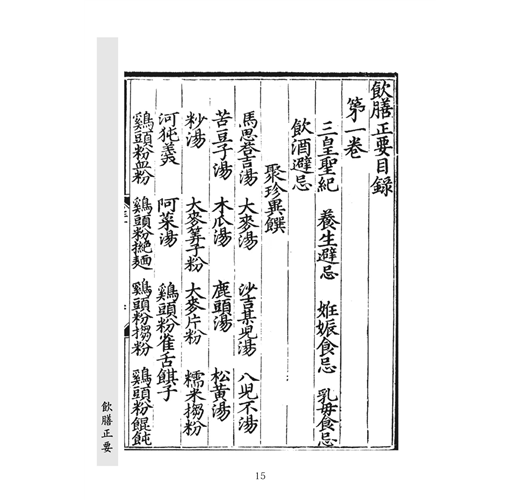 飲膳正要目録
第一卷
三皇聖紀 養生避忌 妊娠食忌 乳母食忌
飲酒避忌
聚珍異饌
馬思荅吉湯 大麥湯 沙吉某兒湯 八兒不湯
苦豆子湯 木瓜湯 鹿頭湯 松黃湯
粆湯 大麥筭子粉 大麥片粉 糯米搊粉
河㹠羹 阿菜湯 鷄頭粉雀舌餺子
鷄頭粉血粉 鷄頭粉撧麵 鷄頭粉搊粉 鷄頭粉餛飩
飲膳正要
15